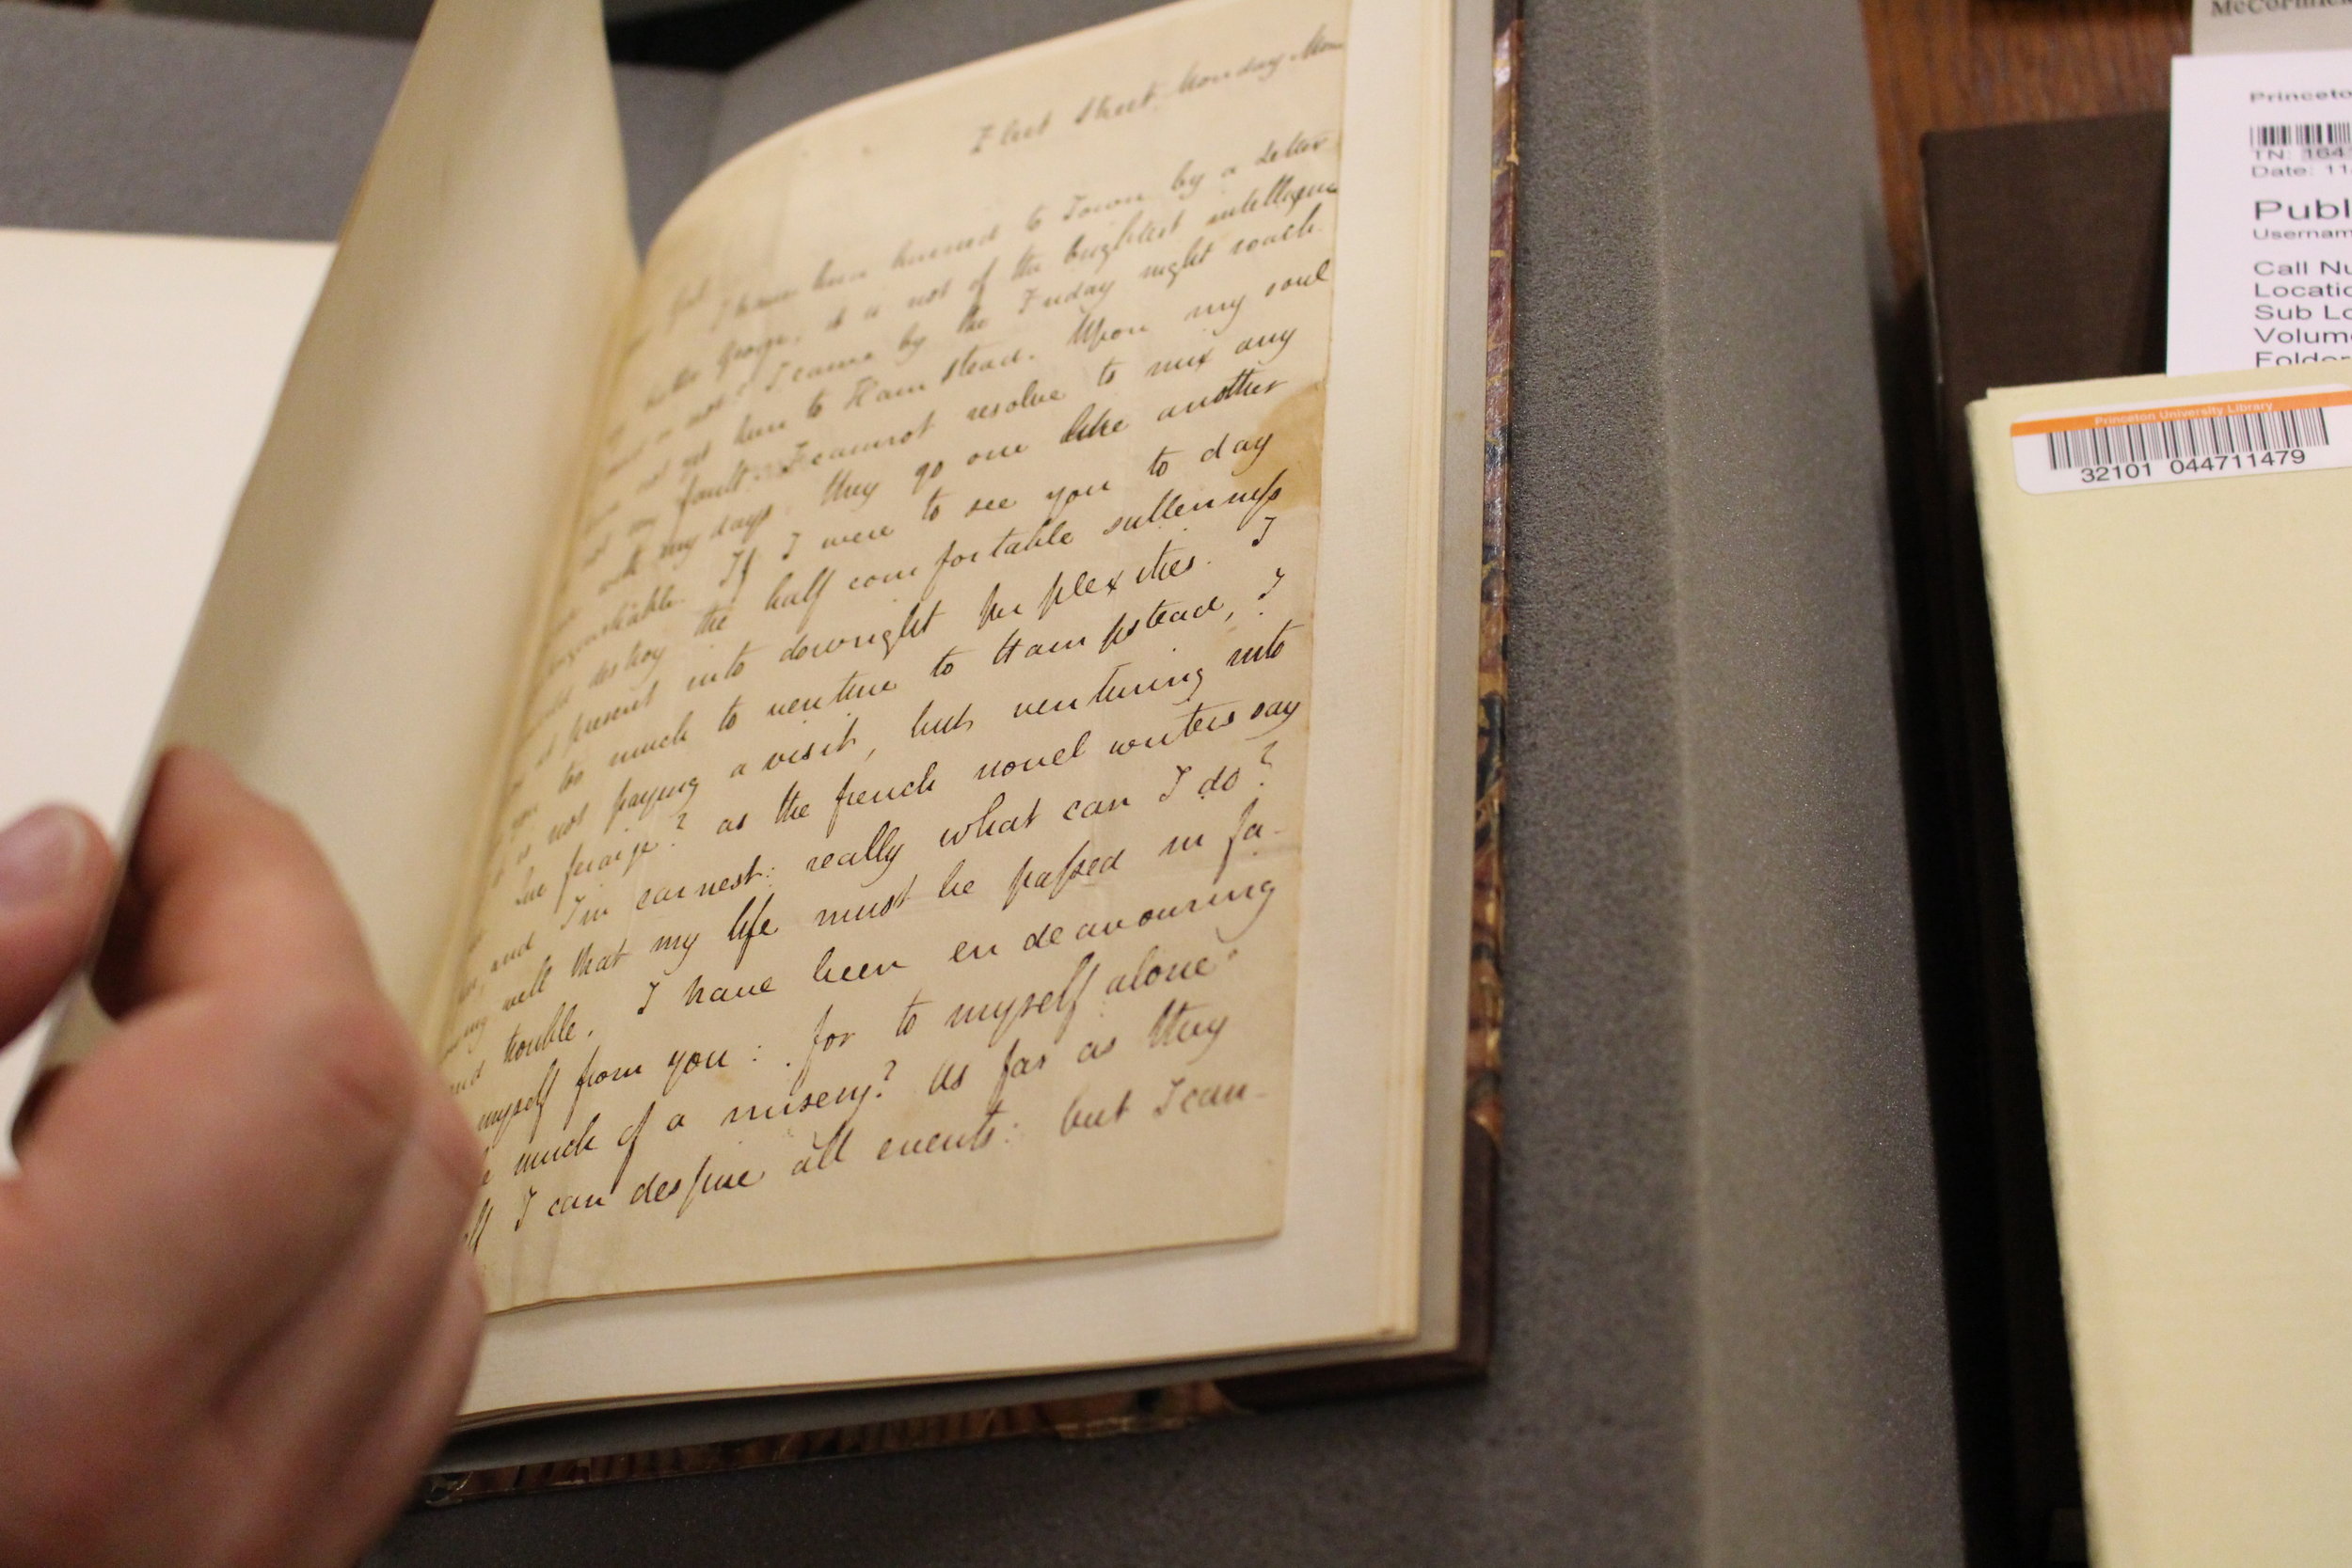 Fleet Street, Monday Mon
Girl
I have been hurried to Town by a Letter
brother George; it is not of the brightest intelligence
or not? I came by the Friday night coach
not yet been to Hamstead. Upon my soul
not my fault. I cannot resolve to mix any
with my days: they go one like another
If I were to see you to day
destroy the half comfortable sullenness
at present into downright perplexities. I
you too much to venture to Hampstead, I
it is not paying a visit, but venturing into
fire? as the french novel writers say
and I'm earnest: really what can I do?
well that my life must be passed in fa-
and trouble. I have been endeavouring
myself from you: for to myself alone
much of a misery? As far as they
I can despise all events: but I can-
McCormick
Princeto
TN: 164
Date: 11
Publ
Usernam
Call Nu
Locatio
Sub Lo
Volum
Folder
Princeton University Library
32101 044711479